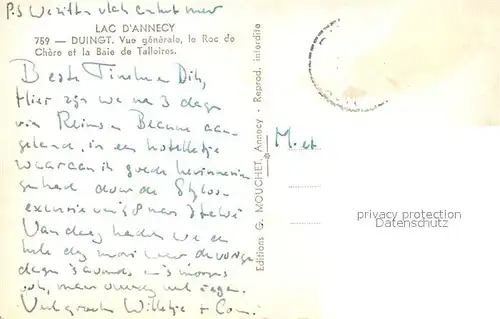 P.S We zitten vlak aan het meer
LAC D'ANNECY
759 — DUINGT. Vue générale, le Roc de
Chère et la Baie de Talloires.
Beste Tineke + Dik,
Hier zijn we na 3 dagen
via Reims en Beaune aan-
geland, in een hotelletje
waaraan ik goede herinnering
gehad door de
excursie 8
Vandaag hadden we een
hele dag mooi weer de vorige
dagen 's avonds en 's morgens
ook, maar overdag veel regen.
Veel groeten Willetje + Con.
Editions G. MOUCHET, Annecy - Reprod. interdite
M. et
privacy protection
Datenschutz